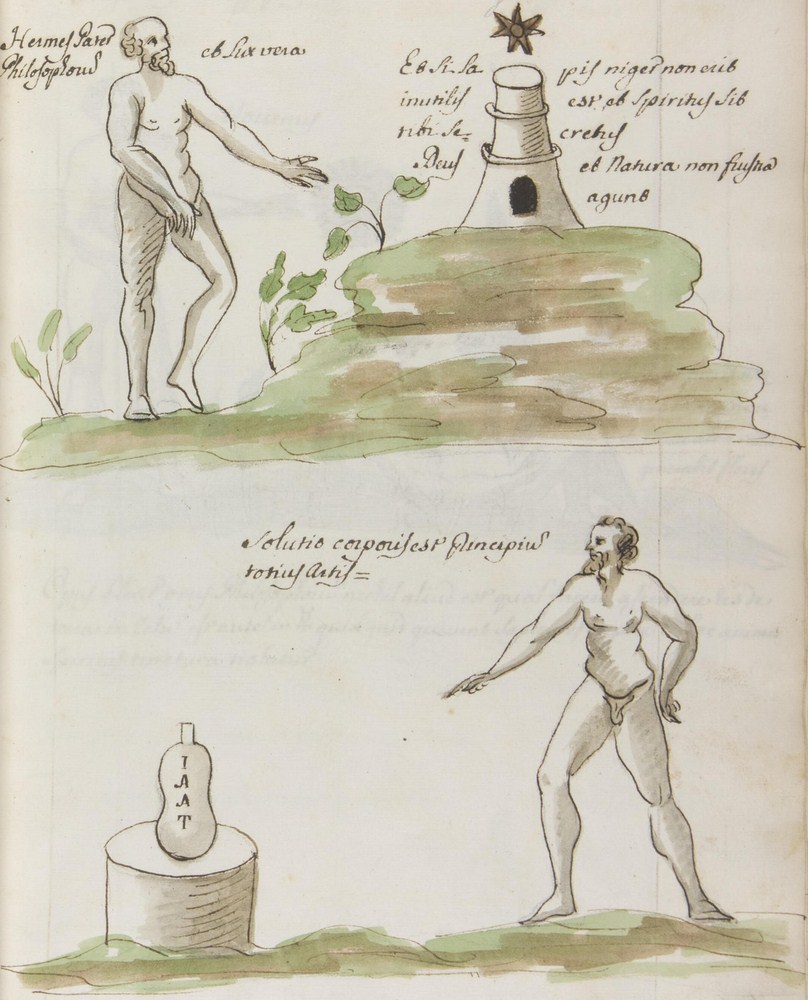 Hermes Pater et Lux vera
Philosophorũ
Et Si. La pis niger non erit
inutilis est, et Spiritus sit
tibi Se= cretus
Deus et Natura non frustra
agunt
Solutio corporis est Principiũ
totius Artis=
I
A
A
T